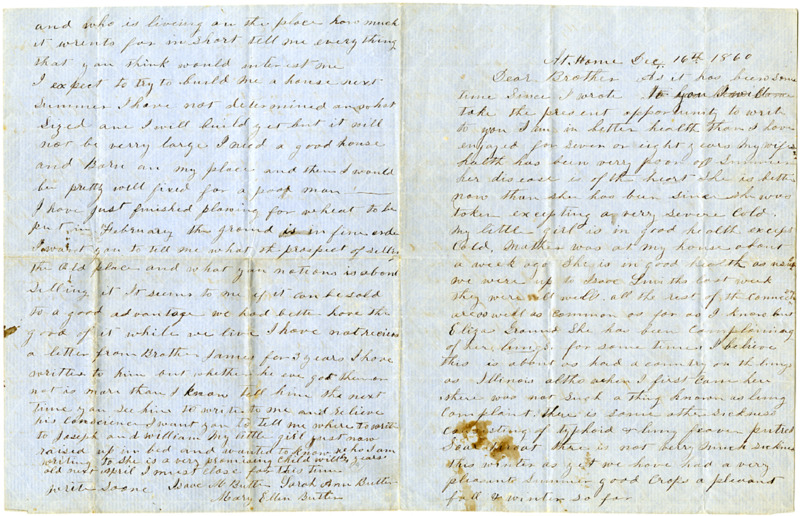 At Home Dec 16th 1860
Dear Brother As it has been some
time since I wrote to you I will
take the present opportunity to write
to you I am in better health than I have
enjoyed for seven or eight years my wifes
health has been verry poor all summer
her disease is of the heart She is better
now than she has been since she was
taken excepting a very severe cold.
My little girl is in good health except
Cold. Mother was at my house about
a week ago She is in good health as usual
we were up to Isaac Linvilles last week
they were all well. all the rest of the connection
are as well as common as far as I know but
Eliza She has been complaining
of her lungs for some time. I believe
this is about as bad a country on the lungs
as Illinois altho when I first came here
there was not such a thing known as lung
complaint. there is some other sickness
consisting of typhoid & lung fever putred
Sour throat there is not very much sickness
this winter as yet we have had a very
pleasant summer good crops a pleasant
fall & winter so far
and who is living on the place how much
it wrents for in short tell me everything
that you think would interest me
I expect to try to build me a house next
summer I have not determined on what
sized one I will build yet but it will
not be verry large I need a good house
and Barn on my place and then I would
be pretty well fixed for a poor man!
I have just finished plowing for wheat to be
put in February the ground is in fine order
I want you to tell me what the prospect of selling
the old place and what you nations is about
selling it It seems to me if it can be sold
to a good advantage we had better have the
good of it while we live I have not recieved
a letter from Brother James for 3 years I have
written to him but whether he ever got them or
not is more than I know tell him the next
time you see him to write to me and relieve
his Conscience I want you to tell me where to write
to Joseph and William My little girl just now
raised up in bed and wanted to know who I am
writing to She is a very promising child will be years
old next April I must close for this time
write soone Isaac M Butler Sarah Ann Butler
Mary Ellen Butler